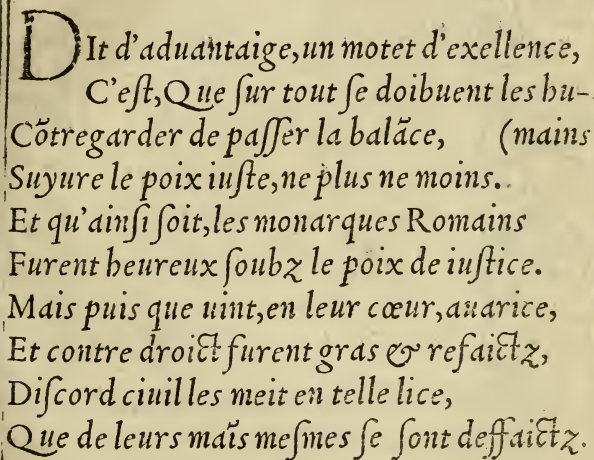 DIt d'aduãtaige,un motet d'exellence,
C'eſt,Que ſur tout ſe doibuent les hu-
Cõtregarder de paſſer la balãce, (mains
Suyure le poix iuſte,ne plus ne moins.
Et qu'ainſi ſoit,les monarques Romains
Furent heureux ſoubz le poix de iuſtice.
Mais puis que uint,en leur cœur,auarice,
Et contre droict furent gras & refaictz,
Diſcord ciuil les meit en telle lice,
Que de leurs maĩs meſmes ſe ſont deffaictz.